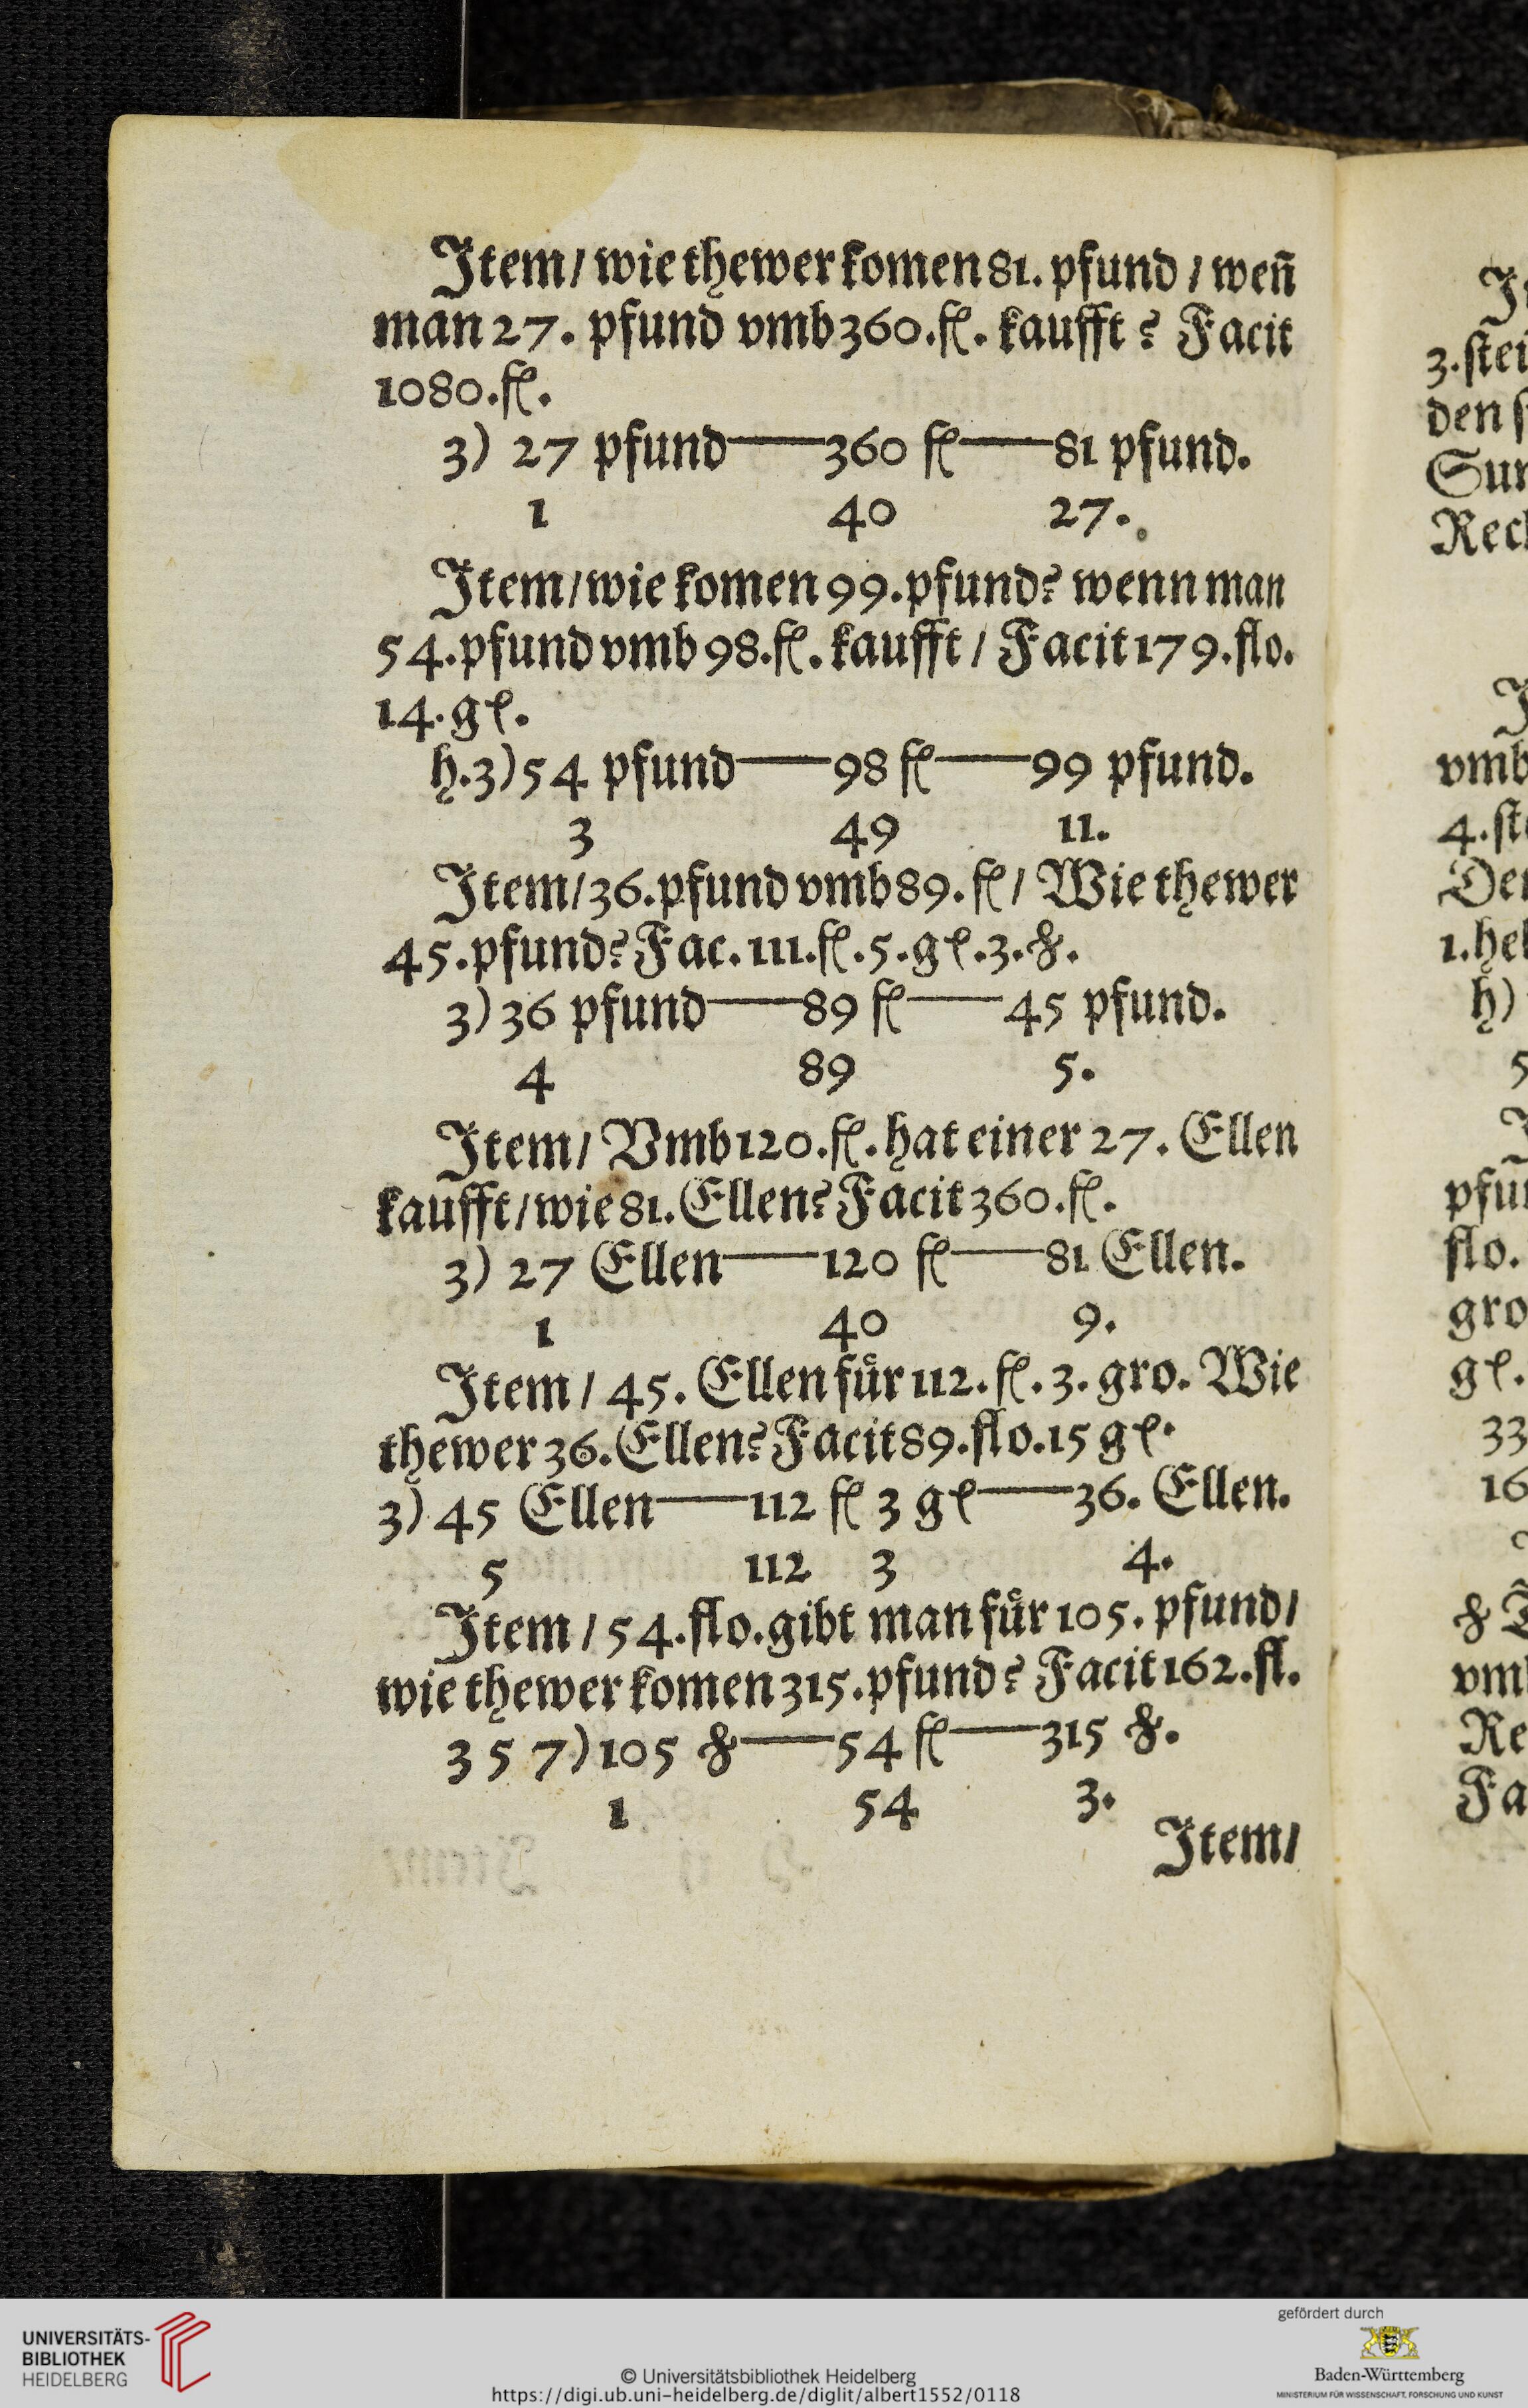 Item/ wie thewer komen 81. pfund / weñ
man 27. pfund vmb 360. fl. kaufft? Facit
1080. fl.
3) 27 pfund——360 fl——81 pfund.
1 40 27.
Item/ wie komen 99. pfund? wenn man
54. pfund vmb 98. fl. kaufft / Facit 179. flo.
14. gl.
h. 3) 54 pfund——98 fl——99 pfund.
3 49 11.
Item/ 36. pfund vmb 89. fl / Wie thewer
45. pfund? Fac. 111. fl. 5. gl. 3. ₰.
3) 36 pfund——89 fl——45 pfund.
4 89 5.
Item/ Vmb 120. fl. hat einer 27. Ellen
kaufft/ wie 81. Ellen? Facit 360. fl.
3) 27 Ellen——120 fl——81 Ellen.
1 40 9.
Item / 45. Ellen fuͤr 112. fl. 3. gro. Wie
thewer 36. Ellen? Facit 89. flo. 15 gl.
3) 45 Ellen——112 fl 3 gl——36. Ellen.
5 112 3 4.
Item / 54. flo. gibt man fuͤr 105. pfund/
wie thewer komen 315. pfund? Facit 162. fl.
3 5 7) 105 ₰——54 fl——315 ₰.
1 54 3.
Item/
3. stei
den s
vmb
4. st
1. hel
h)
5
flo.
gro
gl.
33
16
UNIVERSITÄTS-
BIBLIOTHEK
HEIDELBERG
© Universitätsbibliothek Heidelberg
https://digi.ub.uni-heidelberg.de/diglit/albert1552/0118
gefördert durch
Baden-Württemberg
MINISTERIUM FÜR WISSENSCHAFT, FORSCHUNG UND KUNST